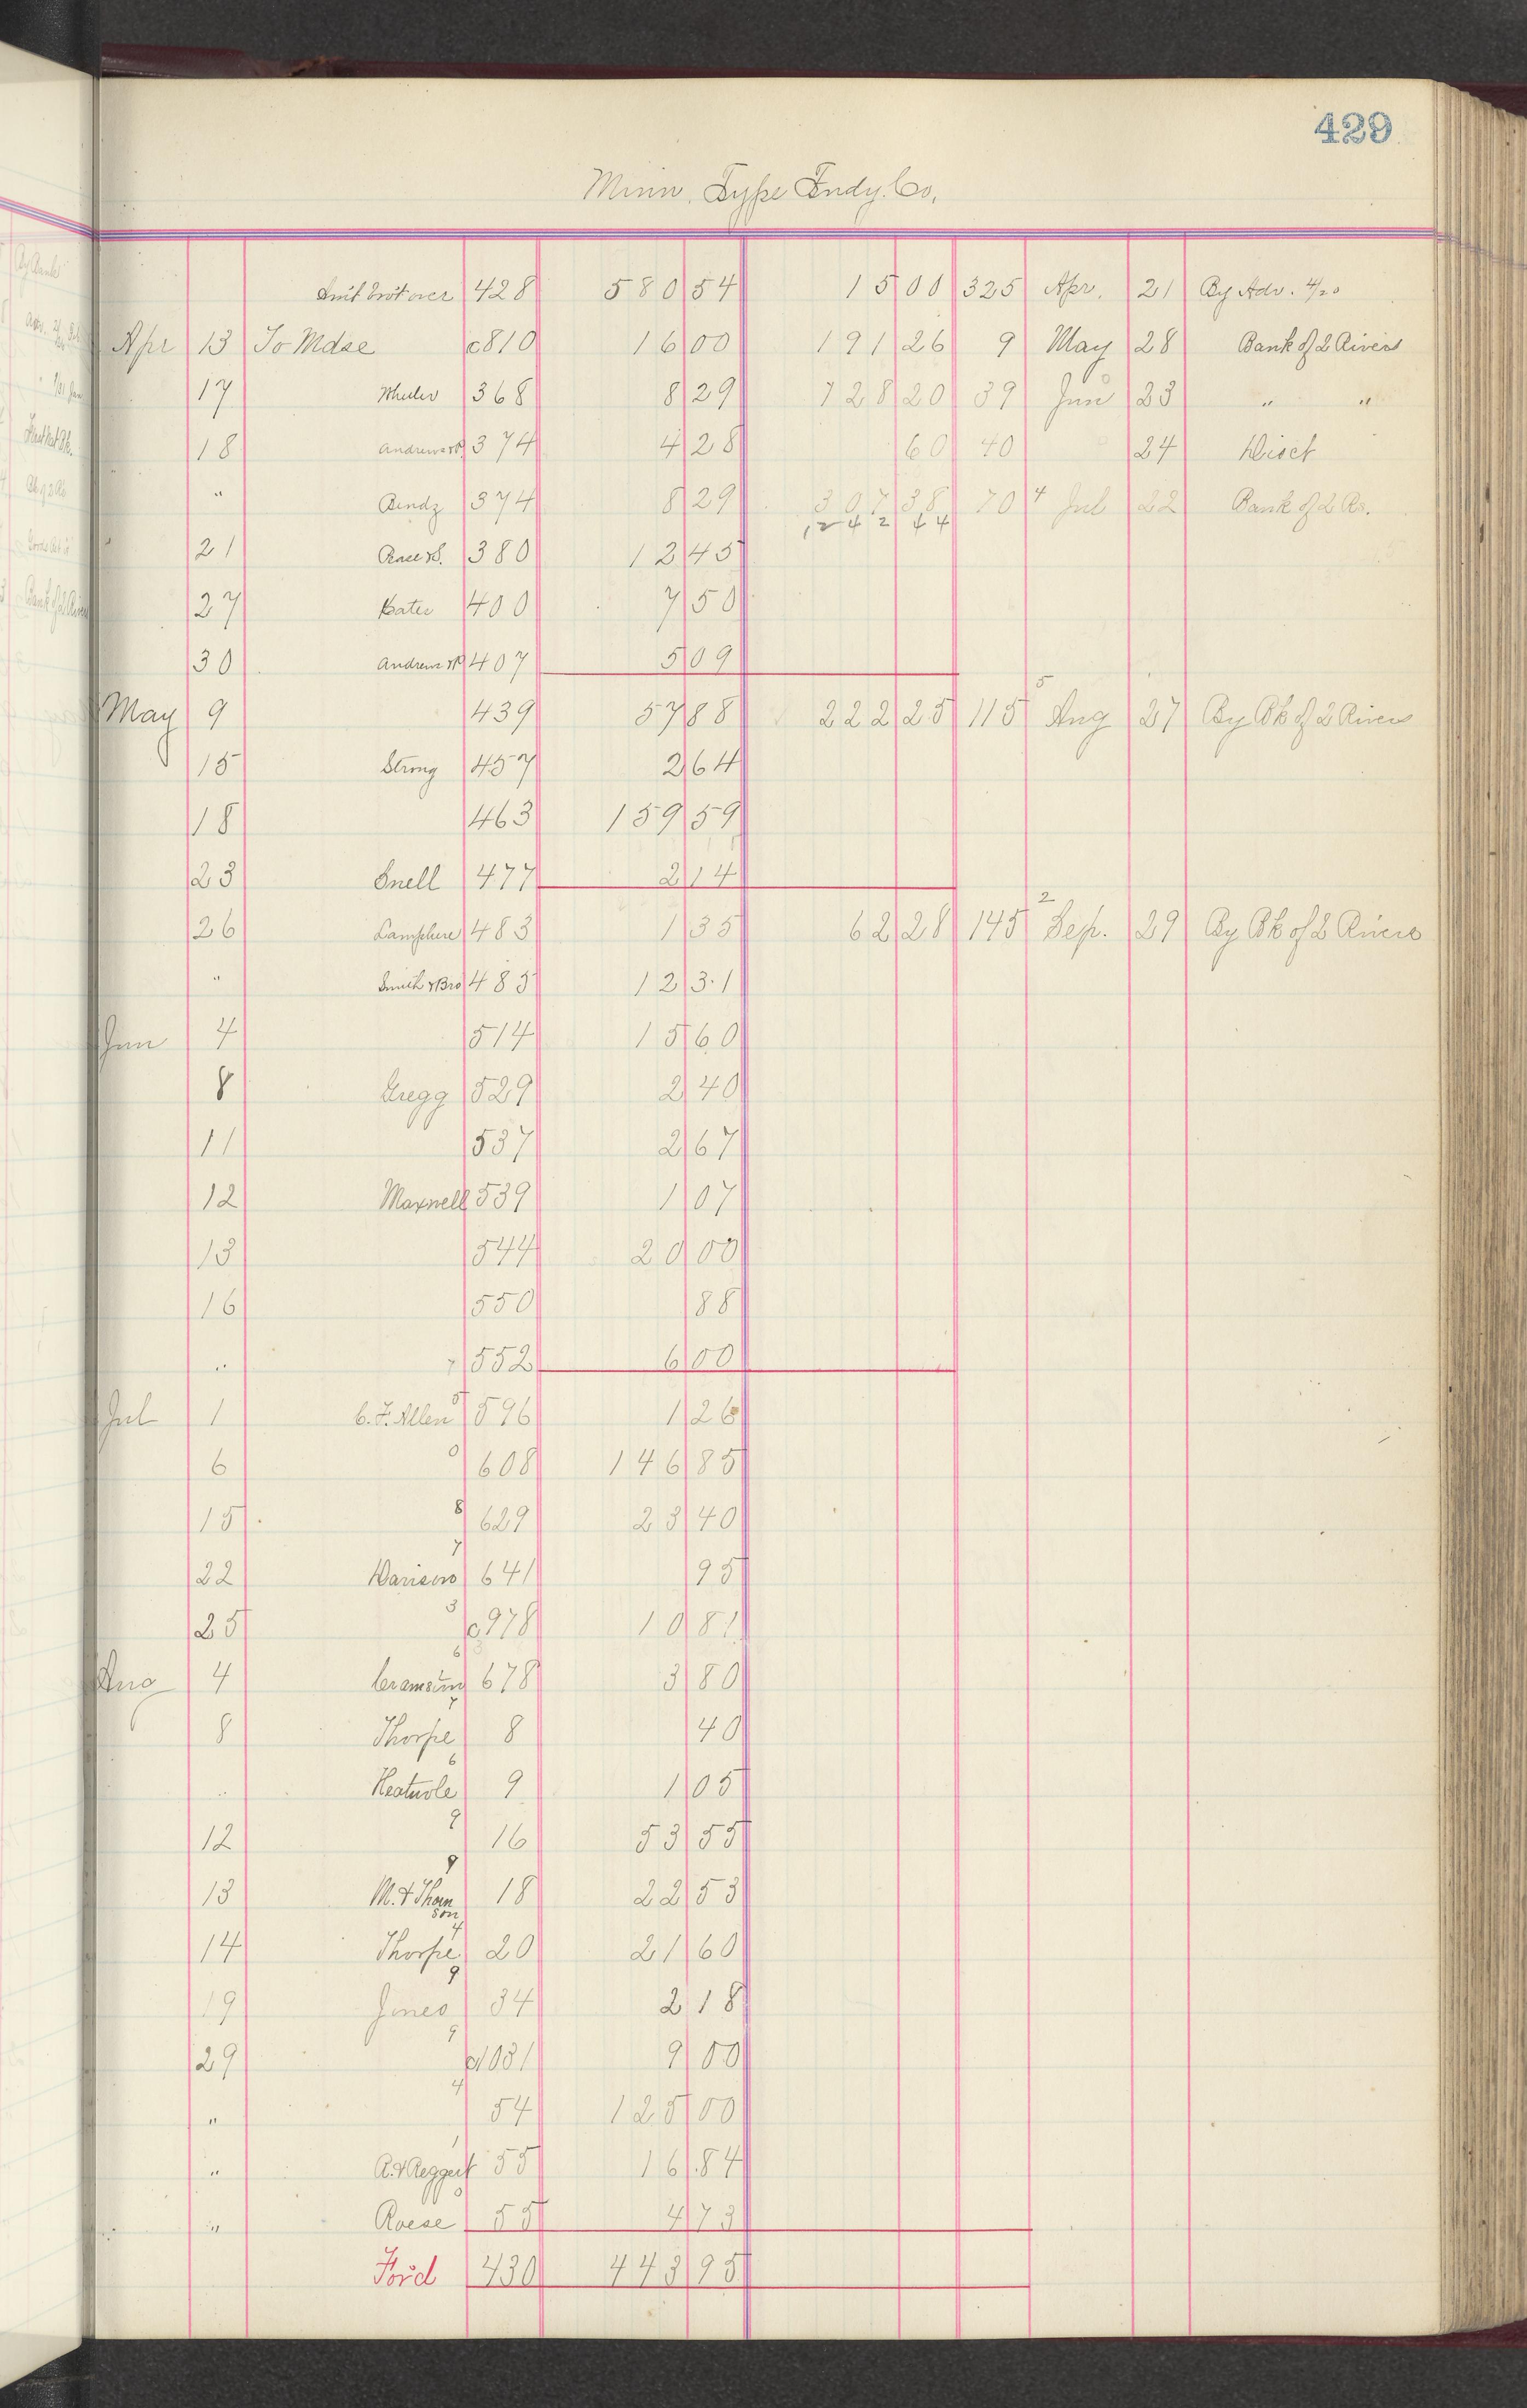 429
Minn. Type Fndy. Co.
Amt brot over 428 580 54 15 00 325 Apr. 21 By Adv. 4/20
Apr 13 To Mdse c810 16 00 191 26 9 May 28 Bank of 2 Rivers
17 Wheeler 368 8 29 728 20 39 Jun 23 " "
18 Andrews & P. 374 4 28 60 40 24 Disct
" Bendz 374 8 29 307 38 70 4 Jul 22 Bank of 2 Rs.
1242 44
21 380 12 45
27 Bates 400 7 50
30 Andrews & P 407 5 09
May 9 439 57 88 222 25 115 5 Aug 27 By Bk of 2 Rivers
15 Strong 457 2 64
18 463 159 59
23 Snell 477 2 14
26 Lamphere 483 1 35 62 28 145 2 Sep. 29 By Bk of 2 Rivers
" Smith & Bro 483 12 31
Jun 4 514 15 60
8 Gregg 529 2 40
11 537 2 67
12 Maxwell 539 1 07
13 544 20 00
16 550 88
" 552 6 00
Jul 1 C. F. Allen 5 596 1 26
6 0 608 146 85
15 8 629 23 40
22 Davison 7 641 95
25 3 c978 10 81
Aug 4 6 678 3 80
8 Thorpe 7 8 40
" Heatwole 6 9 1 05
12 9 16 53 55
13 M. & Thomson 9 18 22 53
14 Thorpe 4 20 21 60
19 Jones 9 34 2 18
29 9 c1031 9 00
" 4 54 125 00
" 1 55 16 84
" Roese 0 55 4 73
Ford 430 443 95